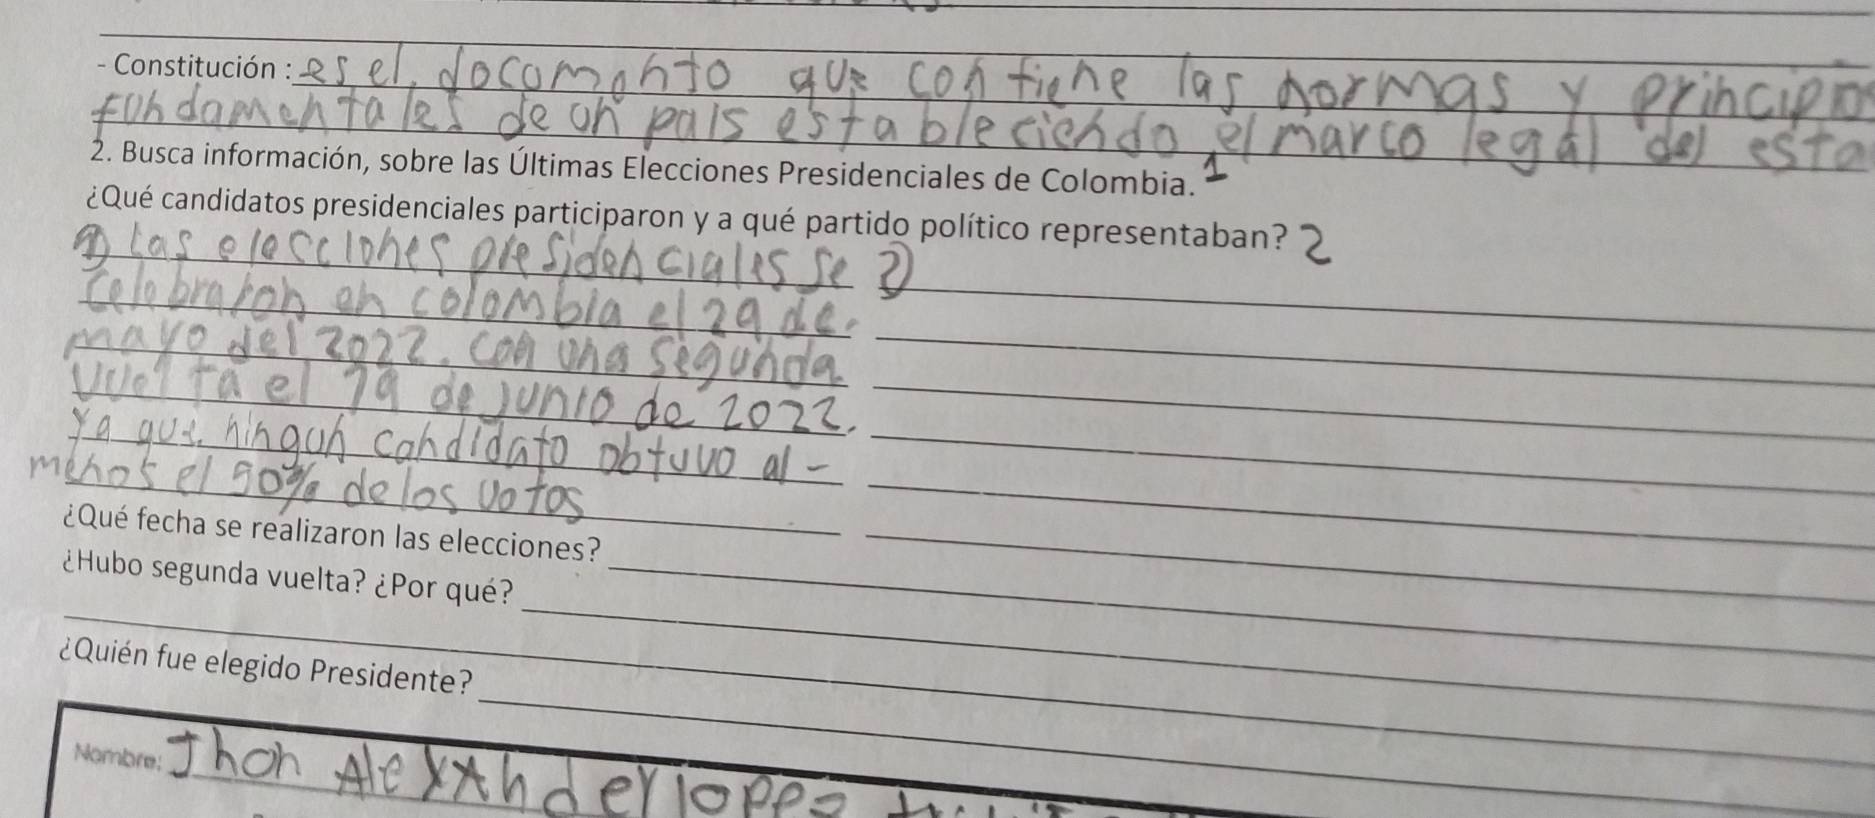 - Constitución : es el documento que contiene las normas y principio
fundamentales de un pais estableciendo el marco legal del esta
2. Busca información, sobre las Últimas Elecciones Presidenciales de Colombia. 1
¿Qué candidatos presidenciales participaron y a qué partido político representaban? 2
① Las elecciones presidenciales se ②
celebraron en colombia el 29 de.
mayo del 2022. con una segunda
vuelta el 19 de junio de 2022.
ya que. ningun candidato obtuvo al -
menos el 50% de los votos
¿Qué fecha se realizaron las elecciones?
¿Hubo segunda vuelta? ¿Por qué?
¿Quién fue elegido Presidente?
Nombre: Jhon AleXAnder lopez